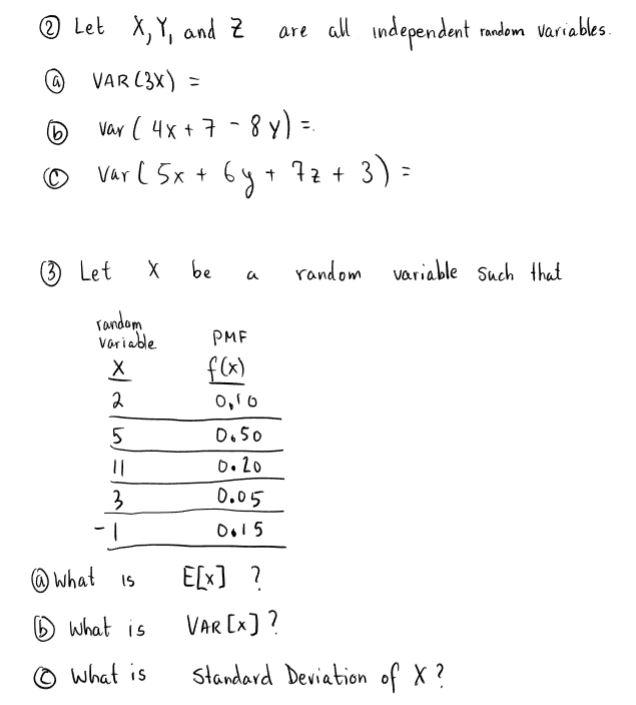 ② Let X, Y, and Z are all independent random variables.
ⓐ VAR(3X) =
ⓑ Var ( 4x + 7 - 8y) =.
ⓒ Var ( 5x + 6y + 7z + 3 ) =
③ Let X be a random variable such that
random
variable PMF
X f(x)
2 0,10
5 0.50
11 0.20
3 0.05
-1 0.15
ⓐ What is E[x] ?
ⓑ What is VAR[x] ?
ⓒ What is Standard Deviation of X ?